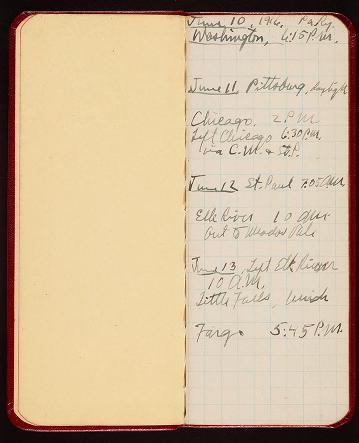 June 10, 1916. Pa Ry.
Washington, 6:15 P.M.
June 11, Pittsburg, daylight
Chicago, 2 P.M.
Left Chicago 6:30 P.M.
via C. M. & St. P.
June 12 St. Paul 7:05 A.M.
Elk River 10 am.
Out to Meadow Vale
June 13, Left Elk River
10 A.M.
Little Falls, lunch
Fargo 5:45 P.M.